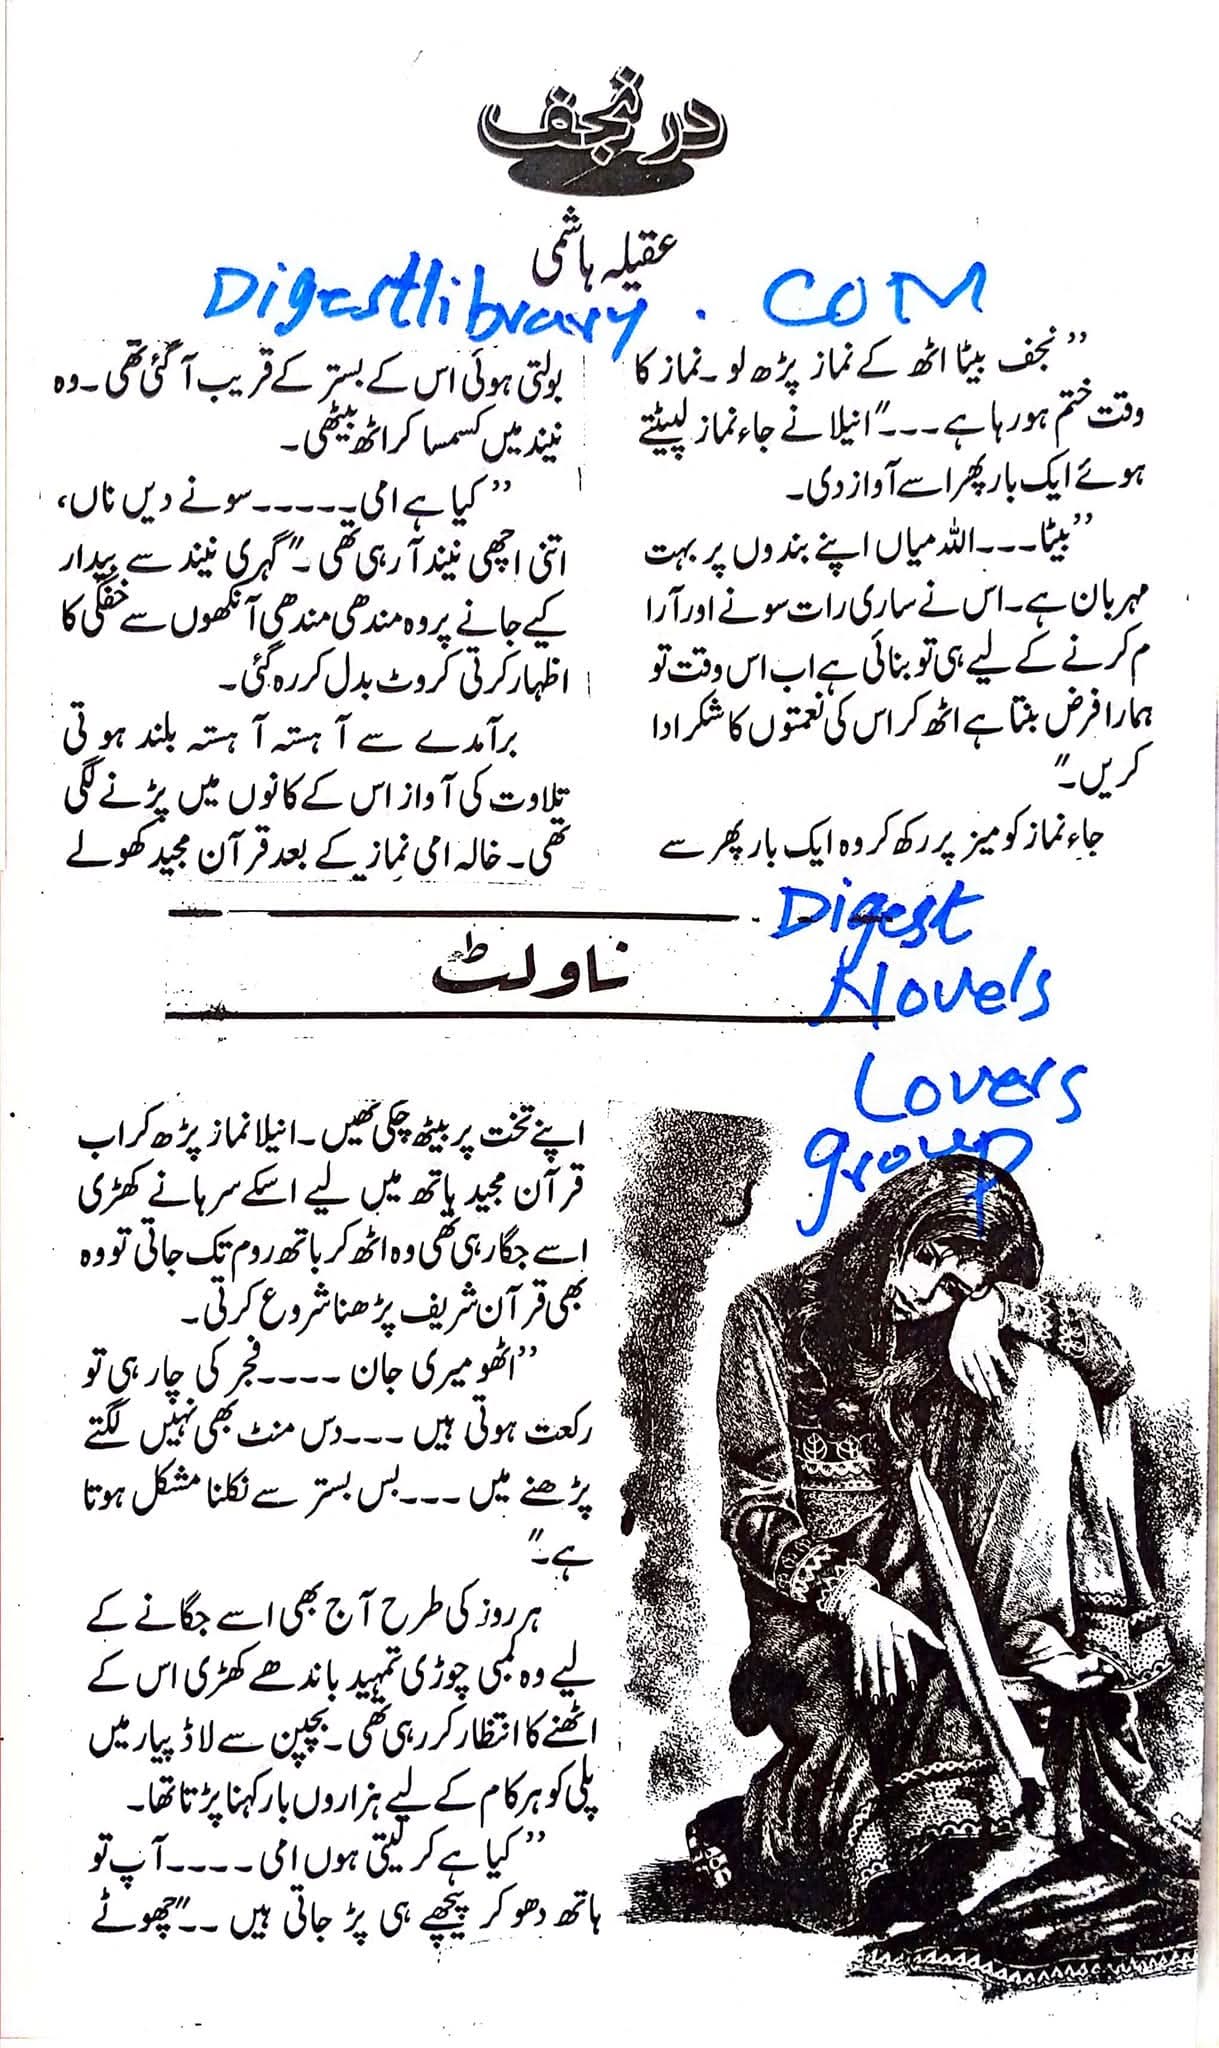 در نجف
عقیلہ ہاشمی
Digestlibrary.COM
”نجف بیٹا اٹھ کے نماز پڑھ لو۔نماز کا
وقت ختم ہورہا ہے۔۔۔“انیلا نے جاء نماز لپیٹتے
ہوئے ایک بار پھر اسے آواز دی۔
”بیٹا۔۔۔اللہ میاں اپنے بندوں پر بہت
مہربان ہے۔اس نے ساری رات سونے اور آرا
م کرنے کے لیے ہی تو بنائی ہے اب اس وقت تو
ہمارا فرض بنتا ہے اٹھ کر اس کی نعمتوں کا شکر ادا
کریں۔“
جاء نماز کو میز پر رکھ کر وہ ایک بار پھر سے
بولتی ہوئی اس کے بستر کے قریب آ گئی تھی۔وہ
نیند میں کسمسا کر اٹھ بیٹھی۔
”کیا ہے امی۔۔۔۔۔سونے دیں ناں،
اتنی اچھی نیند آ رہی تھی۔“گہری نیند سے بیدار
کیے جانے پر وہ مندھی مندھی آنکھوں سے خفگی کا
اظہار کرتی کروٹ بدل کر رہ گئی۔
برآمدے سے آہستہ آہستہ بلند ہوتی
تلاوت کی آواز اس کے کانوں میں پڑنے لگی
تھی۔خالہ امی نماز کے بعد قرآن مجید کھولے
Digest
Novels
Lovers
group
ناولٹ
اپنے تخت پر بیٹھ چکی تھیں۔انیلا نماز پڑھ کر اب
قرآن مجید ہاتھ میں لیے اسکے سرہانے کھڑی
اسے جگا رہی تھی وہ اٹھ کر باتھ روم تک جاتی تو وہ
بھی قرآن شریف پڑھنا شروع کرتی۔
”اٹھو میری جان ۔۔۔۔فجر کی چار ہی تو
رکعت ہوتی ہیں ۔۔۔دس منٹ بھی نہیں لگتے
پڑھنے میں ۔۔۔بس بستر سے نکلنا مشکل ہوتا
ہے۔“
ہر روز کی طرح آج بھی اسے جگانے کے
لیے وہ لمبی چوڑی تمہید باندھے کھڑی اس کے
اٹھنے کا انتظار کر رہی تھی۔بچپن سے لاڈ پیار میں
پلی کو ہر کام کے لیے ہزاروں بار کہنا پڑتا تھا۔
”کیا ہے کر لیتی ہوں امی ۔۔۔۔آپ تو
ہاتھ دھو کر پیچھے ہی پڑ جاتی ہیں ۔۔“چھوٹے